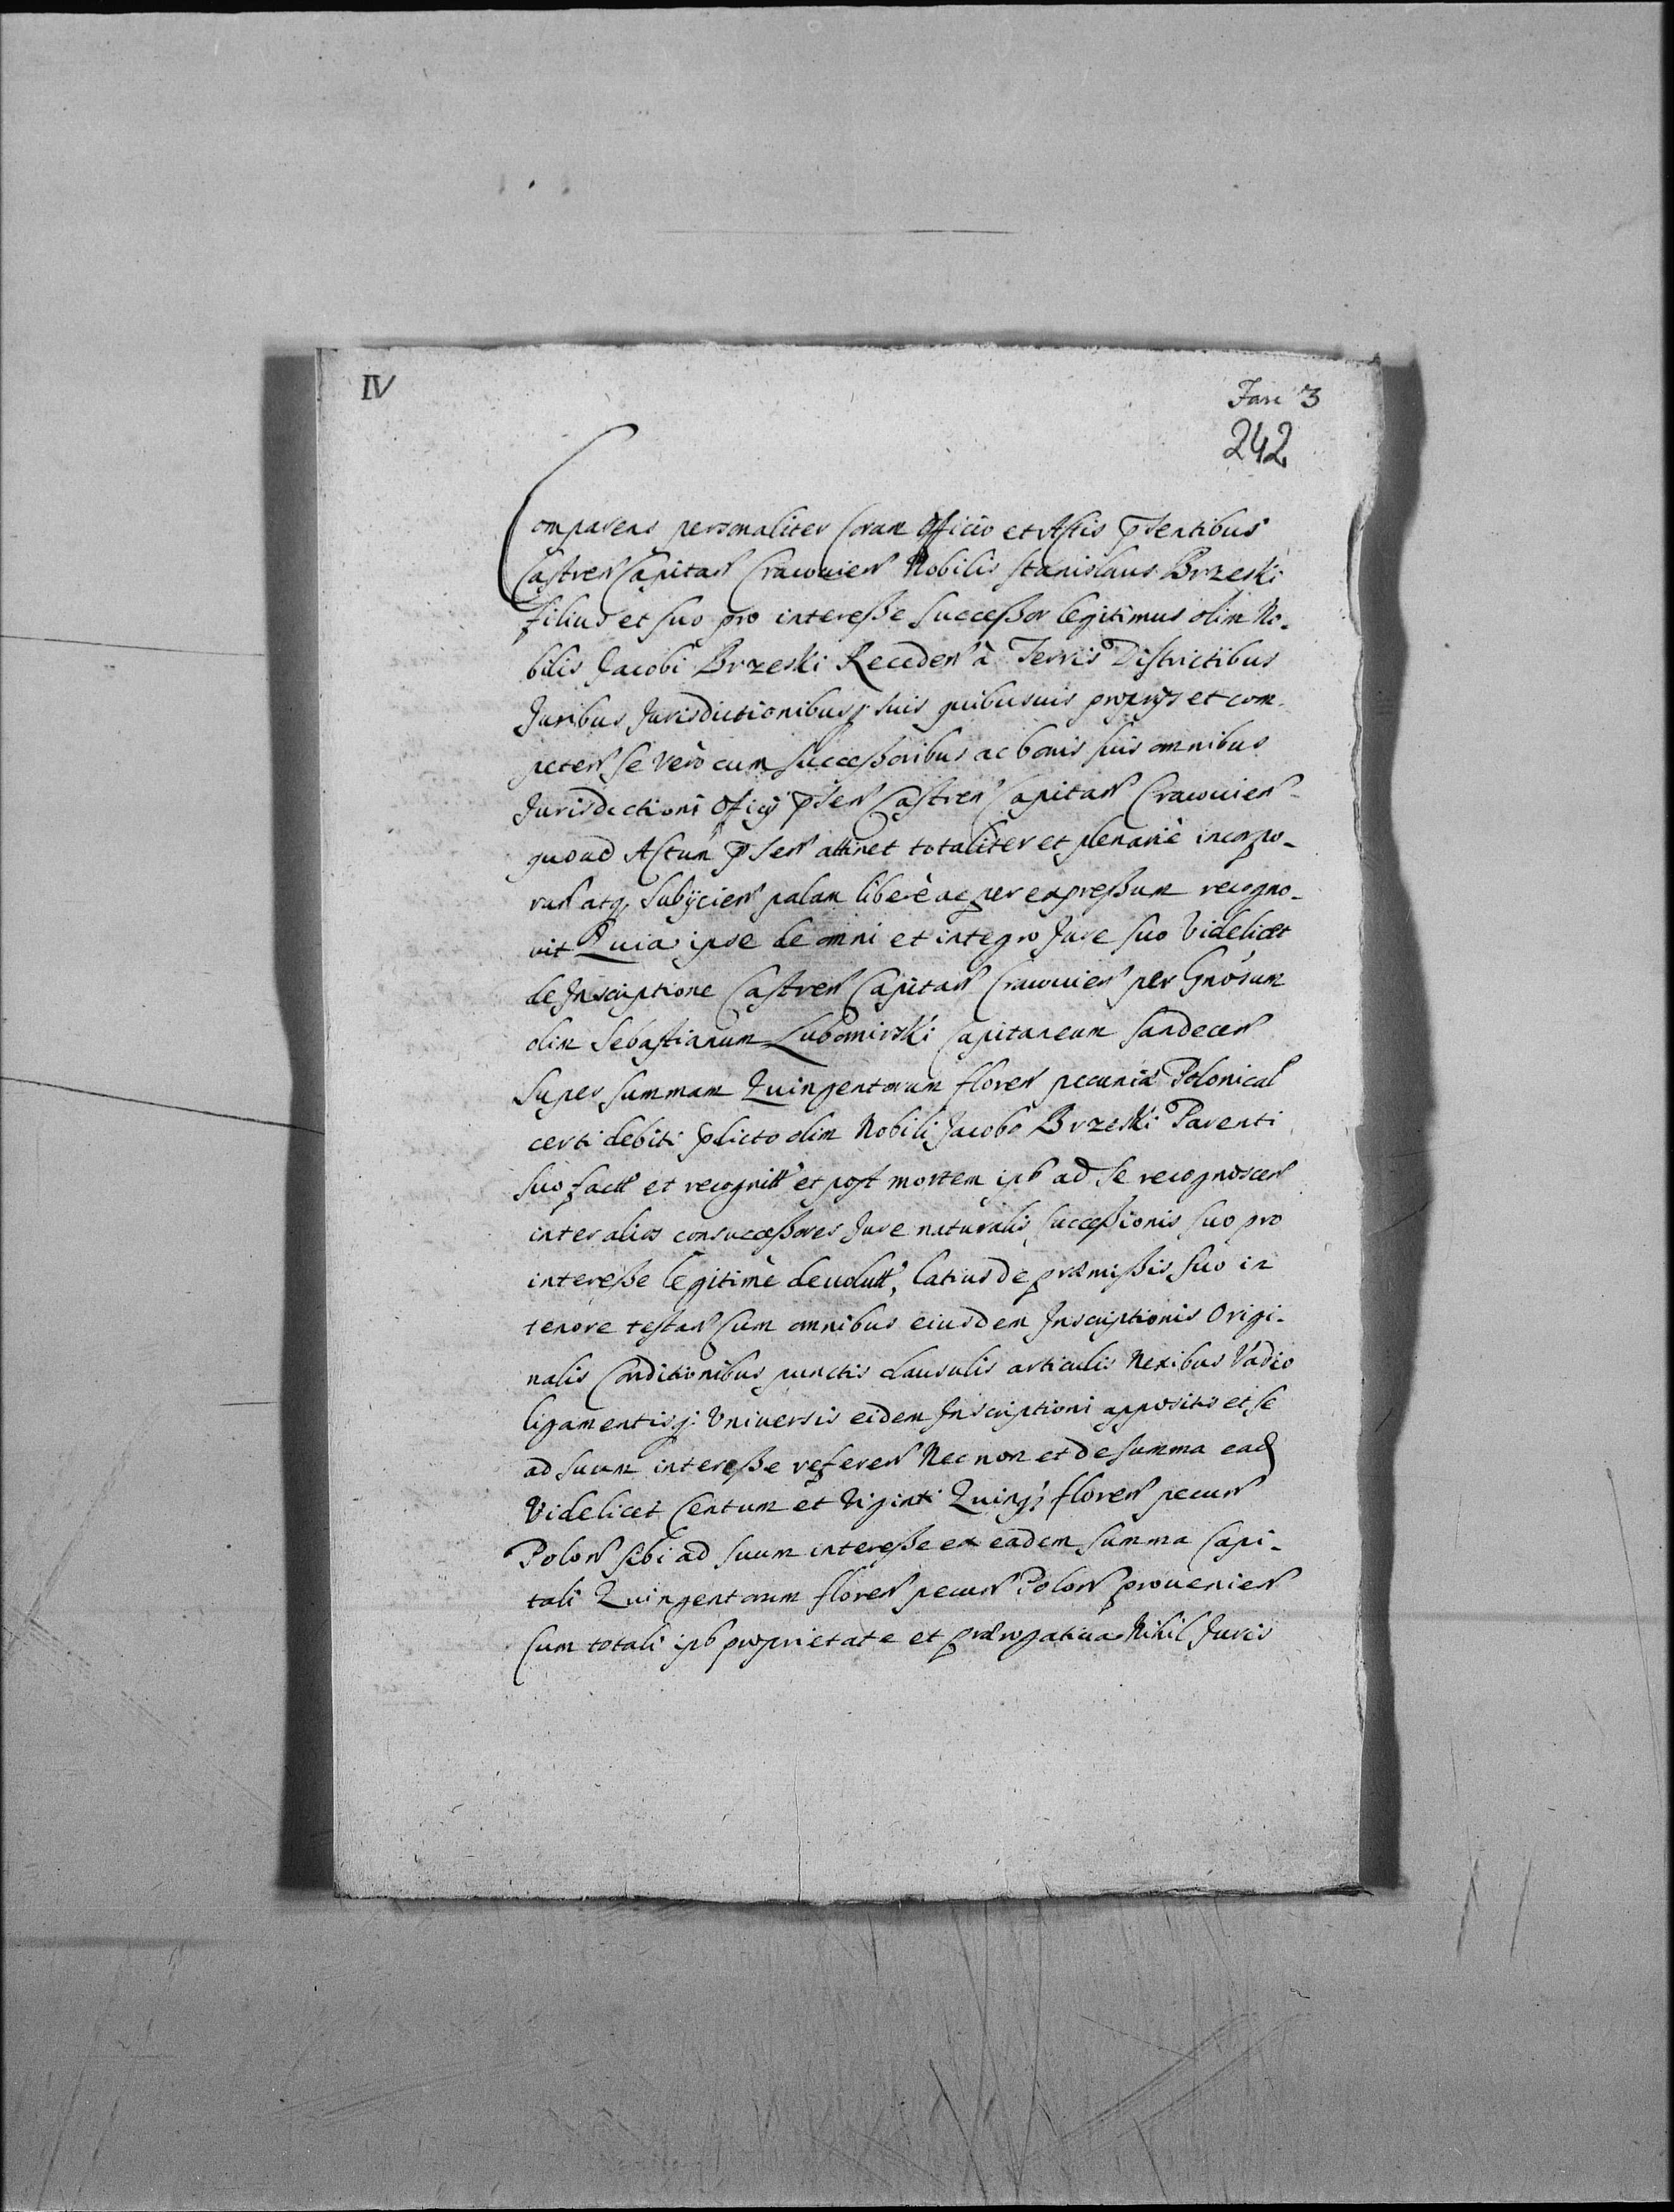 IV
Jan 3
242
Comparens personaliter Coram Officio et Actis pñtibus
Castren Capitan Cracouien Nobilis Stanislaus Brzeski
filius et suo pro interesse Successor legitimus olim No-
bilis Jacobi Brzeski Receden à Terris Districtibus
Juribus Jurisdictionibusq; suis quibusuis proprijs et com-
peten se verò cum Successoribus ac bonis suis omnibus
Jurisdictioni Officij pñsen Castren Capitan Cracouien
quoad Actum pñsen attinet totaliter et plenariè incorpo-
ran atq; Subijcien palam liberè ac per expressum recogno-
uit Quia ipse de omni et integro Jure suo Videlicet
de Inscriptione Castren Capitan Cracouien per Gnosum
olim Sebastianum Lubomirski Capitaneum Sandecen
Super Summam Quingentorum floren pecuniæ Polonical
certi debiti pdicto olim Nobili Jacobo Brzeski Parenti
suo fact et recognit et post mortem ips ad se recognoscen
inter alios consuccessores Jure naturalis Successionis suo pro
interesse legitimè deuolut, latius de præmissis suo in
tenore testan Cum omnibus eiusdem Inscriptionis Origi-
nalis Conditionibus punctis clausulis articulis Nexibus Vadio
ligamentisq; Vniversis eidem Inscriptioni appositis et se
ad suum interesse referen Nec non et de summa ead
Videlicet Centum et Viginti Quinq; floren pecun
Polon sibi ad suum interesse ex eadem Summa Capi-
tali Quingentorum floren pecun Polon prouenien
Cum totali ips proprietate et prærogatiua Nihil Juris